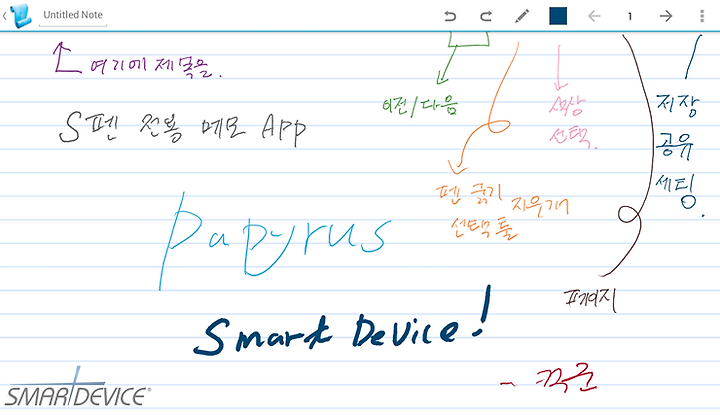 Untitled Note
1
여기에 제목을.
이전/다음
색상
선택.
저장
공유
세팅.
S펜 전용 메모 APP
펜 굵기 지우개
선택 툴
papyrus
페이지
Smart Device!
SMARTDEVICE®